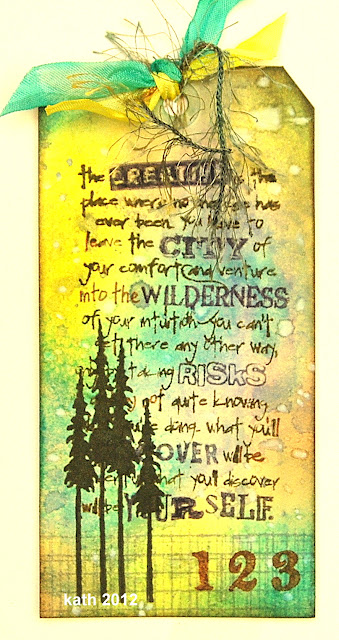 the CREATIVE is the
place where no one else has
ever been. You have to
leave the CITY of
your comfort and venture
into the WILDERNESS
of your intuition. You can't
get there any other way,
taking RISKS
not quite knowing
doing. what you'll
OVER will be
what you'll discover
will be YOURSELF.
1 2 3
kath 2012